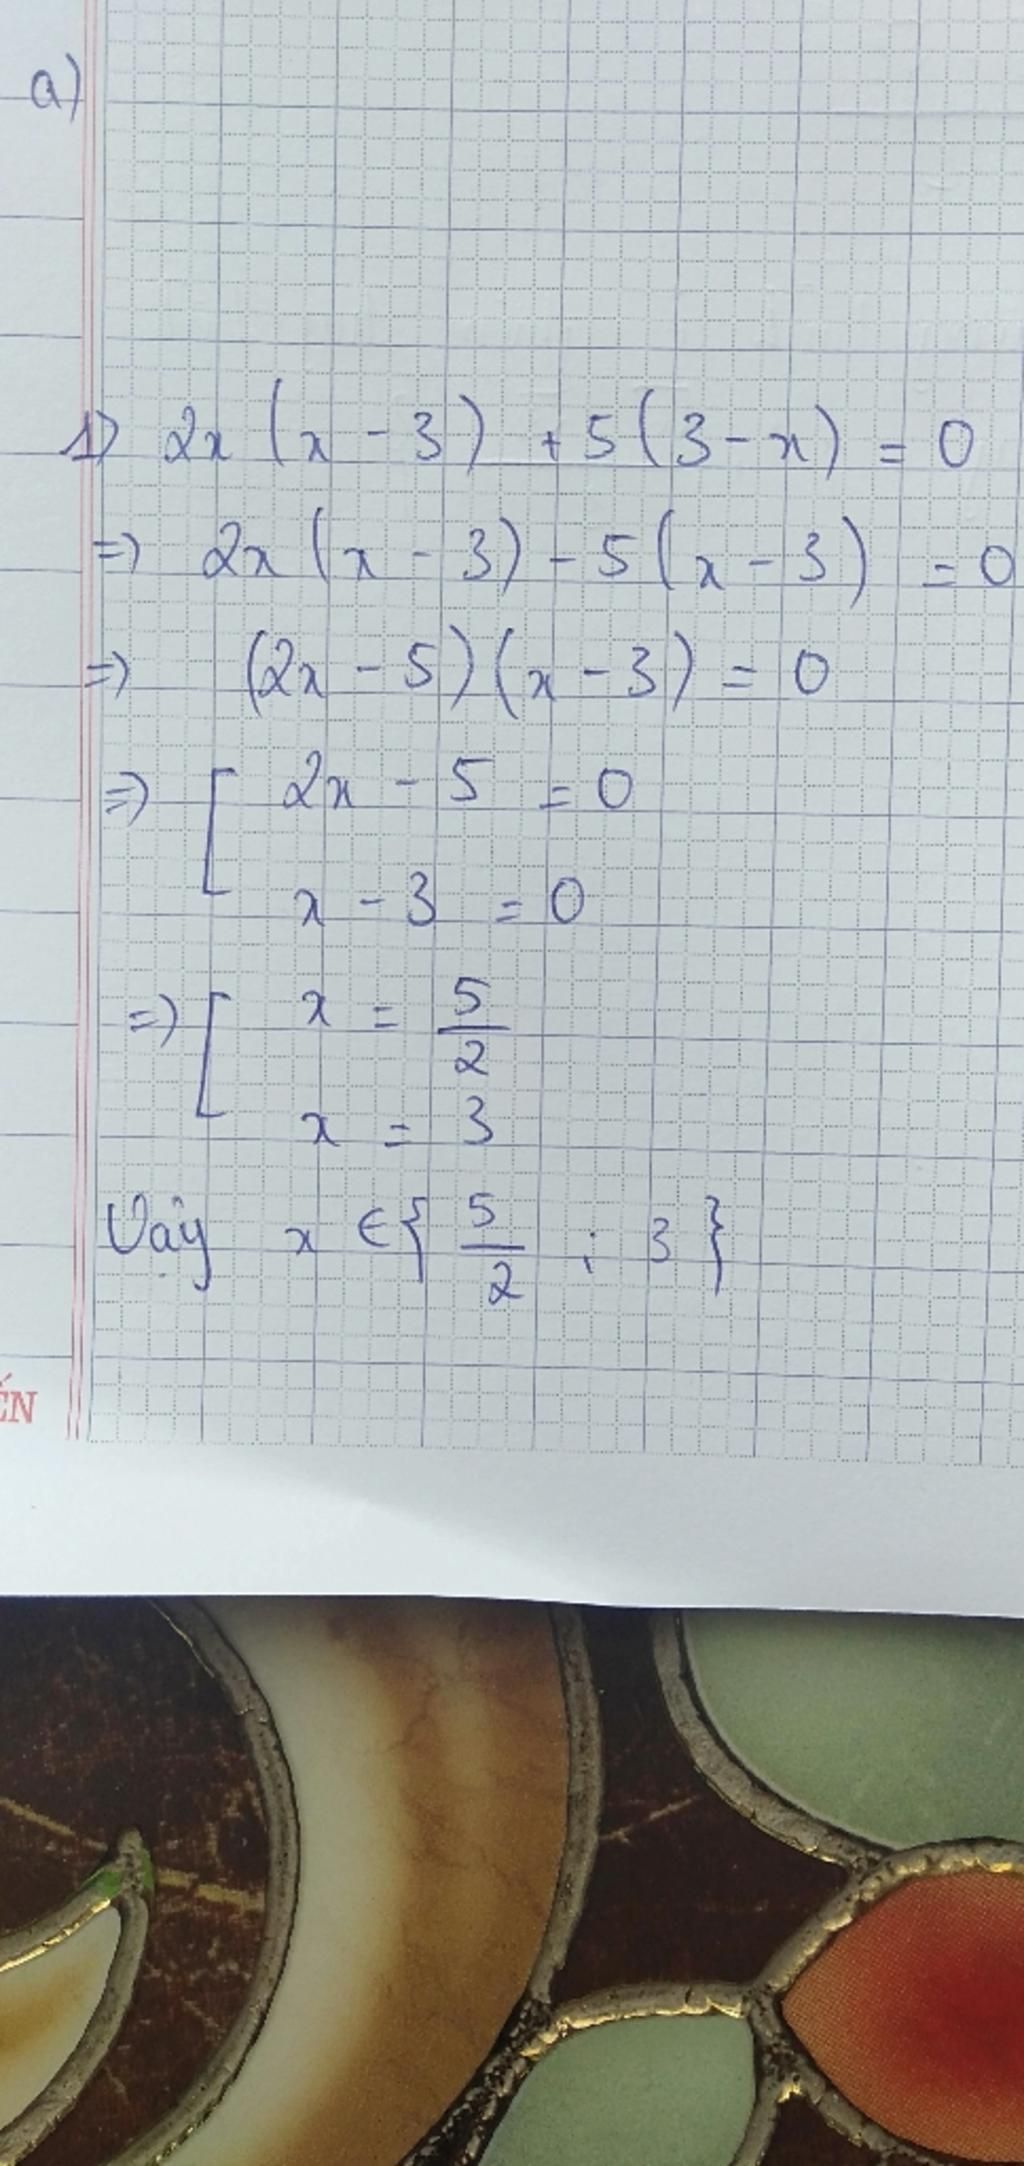 a)
1) 2x (x - 3) + 5 (3 - x) = 0
=) 2x (x - 3) - 5 (x - 3) = 0
=) (2x - 5) (x - 3) = 0
=) [ 2x - 5 = 0
x - 3 = 0
=) [ x = 5/2
x = 3
Vậy x ∈ { 5/2 ; 3 }
ẾN